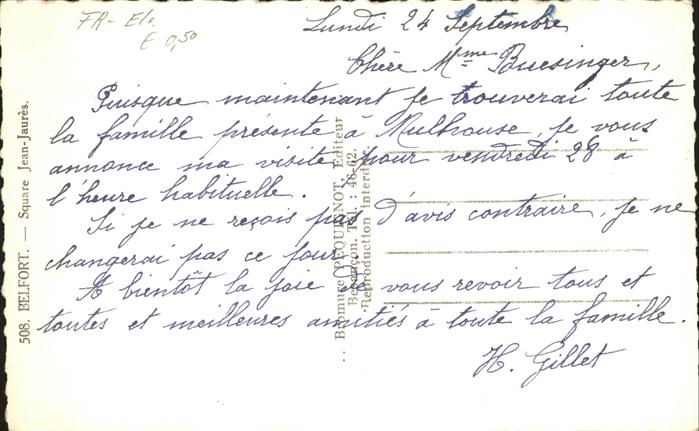 FR-Els
€ 0,50
Lundi 24 Septembre
Chère Mme Buesinger,
Puisque maintenant je trouverai toute
la famille présente à Mulhouse, je vous
annonce ma visite pour vendredi 28 à
l'heure habituelle.
Si je ne reçois pas d'avis contraire, je ne
changerai pas ce jour.
A bientôt la joie de vous revoir tous et
toutes et meilleures amitiés à toute la famille.
H. Gillet
508. BELFORT. — Square Jean-Jaurès.
Bromure PEQUIGNOT, Editeur
Besançon. Tél. : 46-62.
Reproduction interdite.